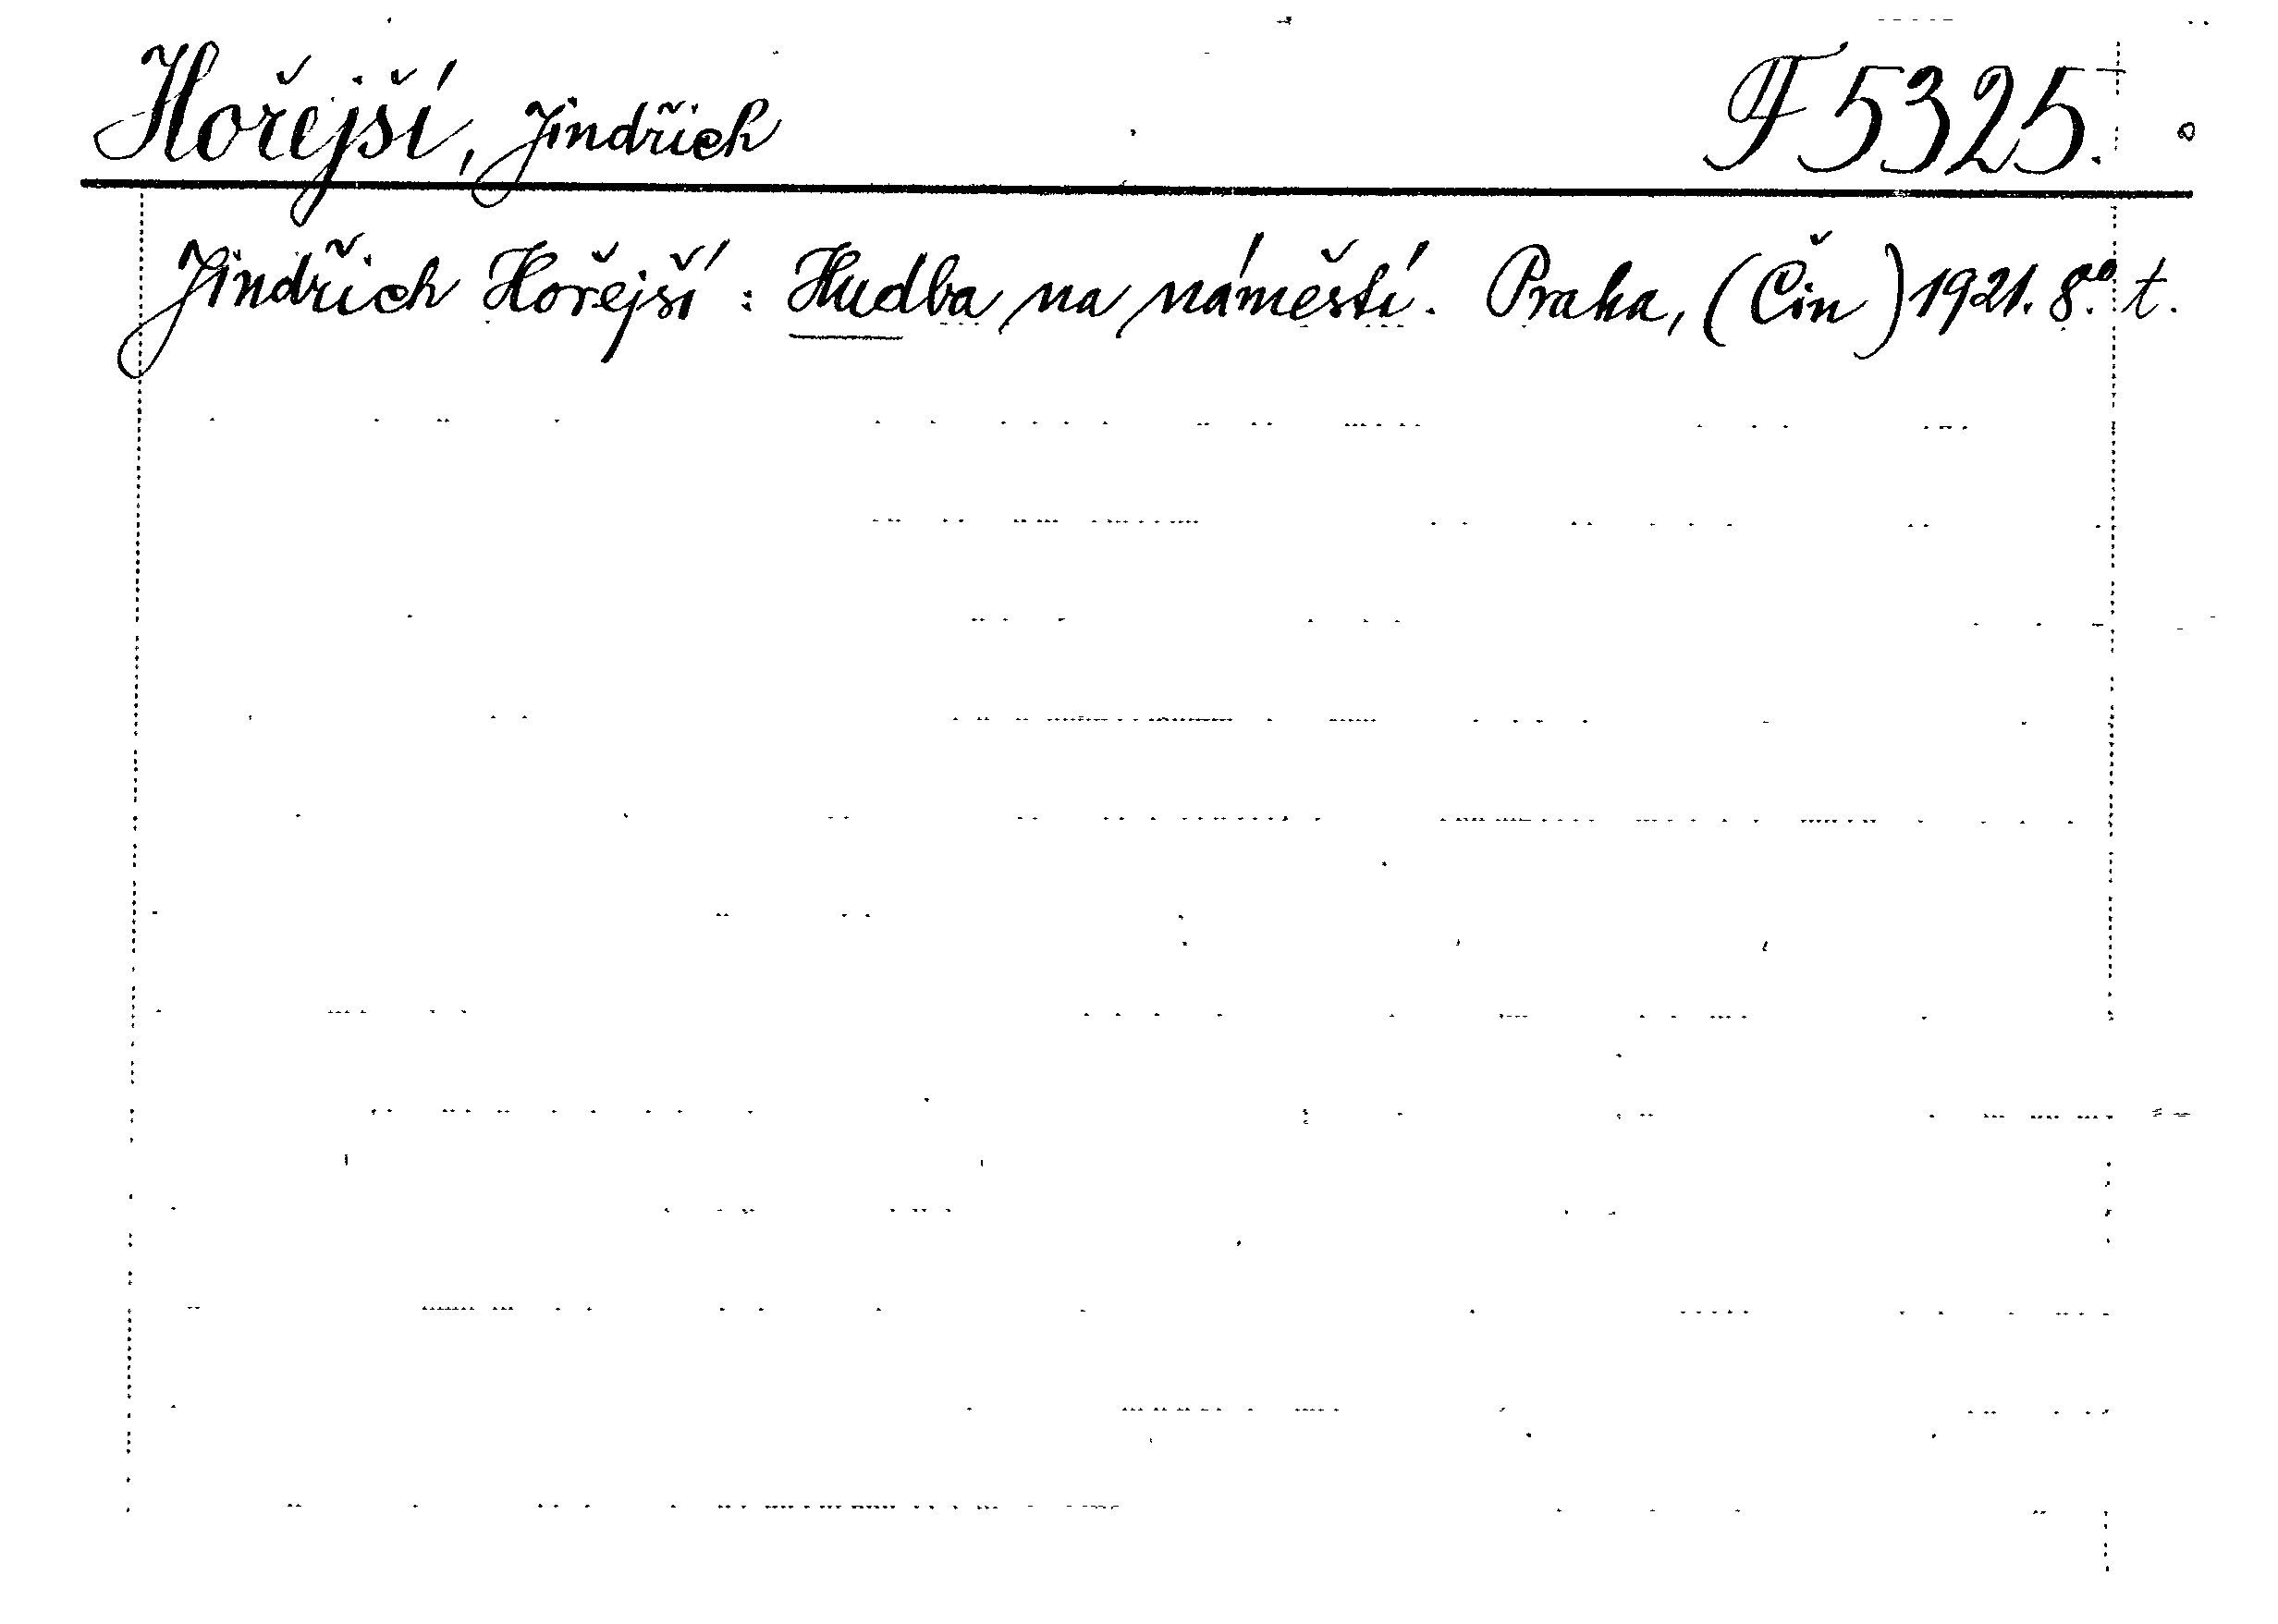 Hořejší, Jindřich F 5325.
Jindřich Hořejší : Hudba na náměstí. Praha, (Čin) 1921. 8°. t.